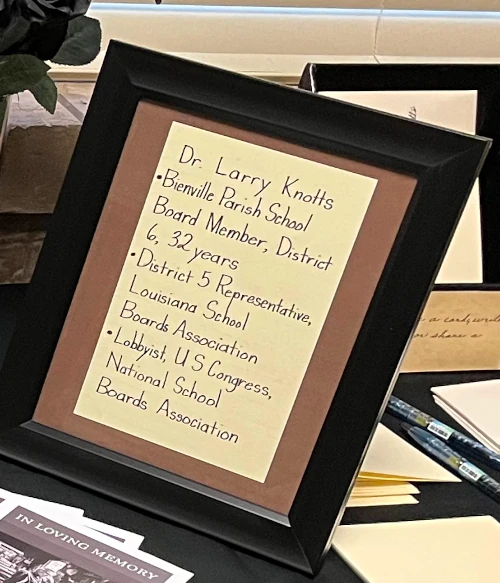 Dr. Larry Knotts
•Bienville Parish School
Board Member, District
6, 32 years
•District 5 Representative,
Louisiana School
Boards Association
•Lobbyist, US Congress,
National School
Boards Association
a card, write
or share a
IN LOVING MEMORY